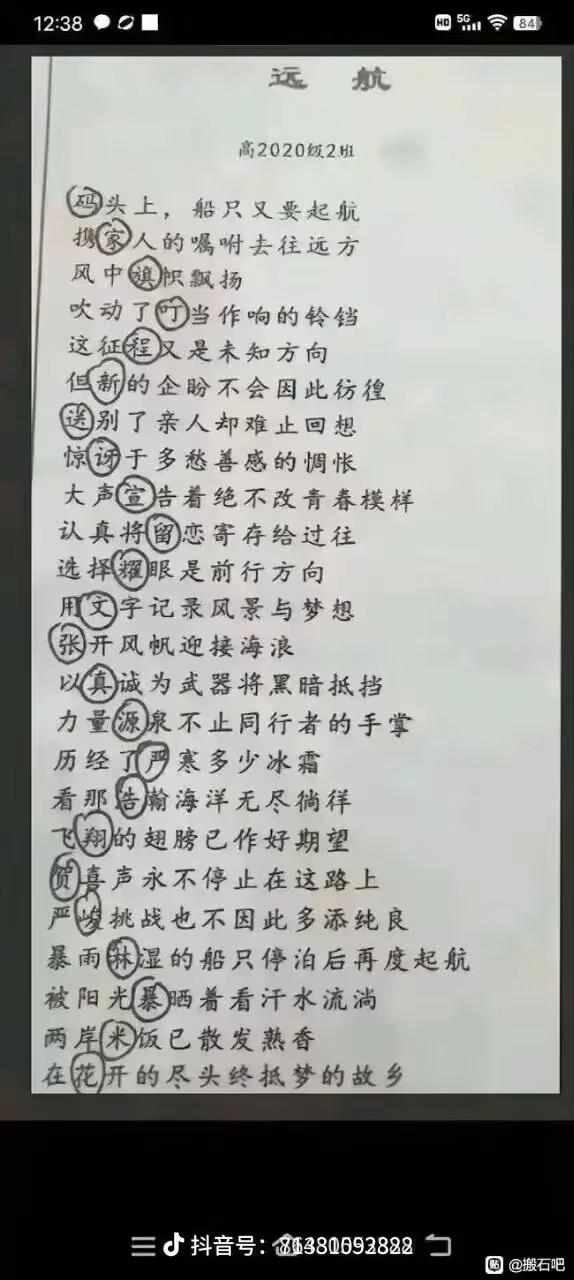 12:38
HD 5G 84
远 航
高2020级2班
码头上，船只又要起航
携家人的嘱咐去往远方
风中旗帜飘扬
吹动了叮当作响的铃铛
这征程又是未知方向
但新的企盼不会因此彷徨
送别了亲人却难止回想
惊讶于多愁善感的惆怅
大声宣告着绝不改青春模样
认真将留恋寄存给过往
选择耀眼是前行方向
用文字记录风景与梦想
张开风帆迎接海浪
以真诚为武器将黑暗抵挡
力量源泉不止同行者的手掌
历经了严寒多少冰霜
看那浩瀚海洋无尽徜徉
飞翔的翅膀已作好期望
贺喜声永不停止在这路上
严峻挑战也不因此多添纯良
暴雨淋湿的船只停泊后再度起航
被阳光暴晒着看汗水流淌
两岸米饭已散发熟香
在花开的尽头终抵梦的故乡
抖音号：
贴 @搬石吧